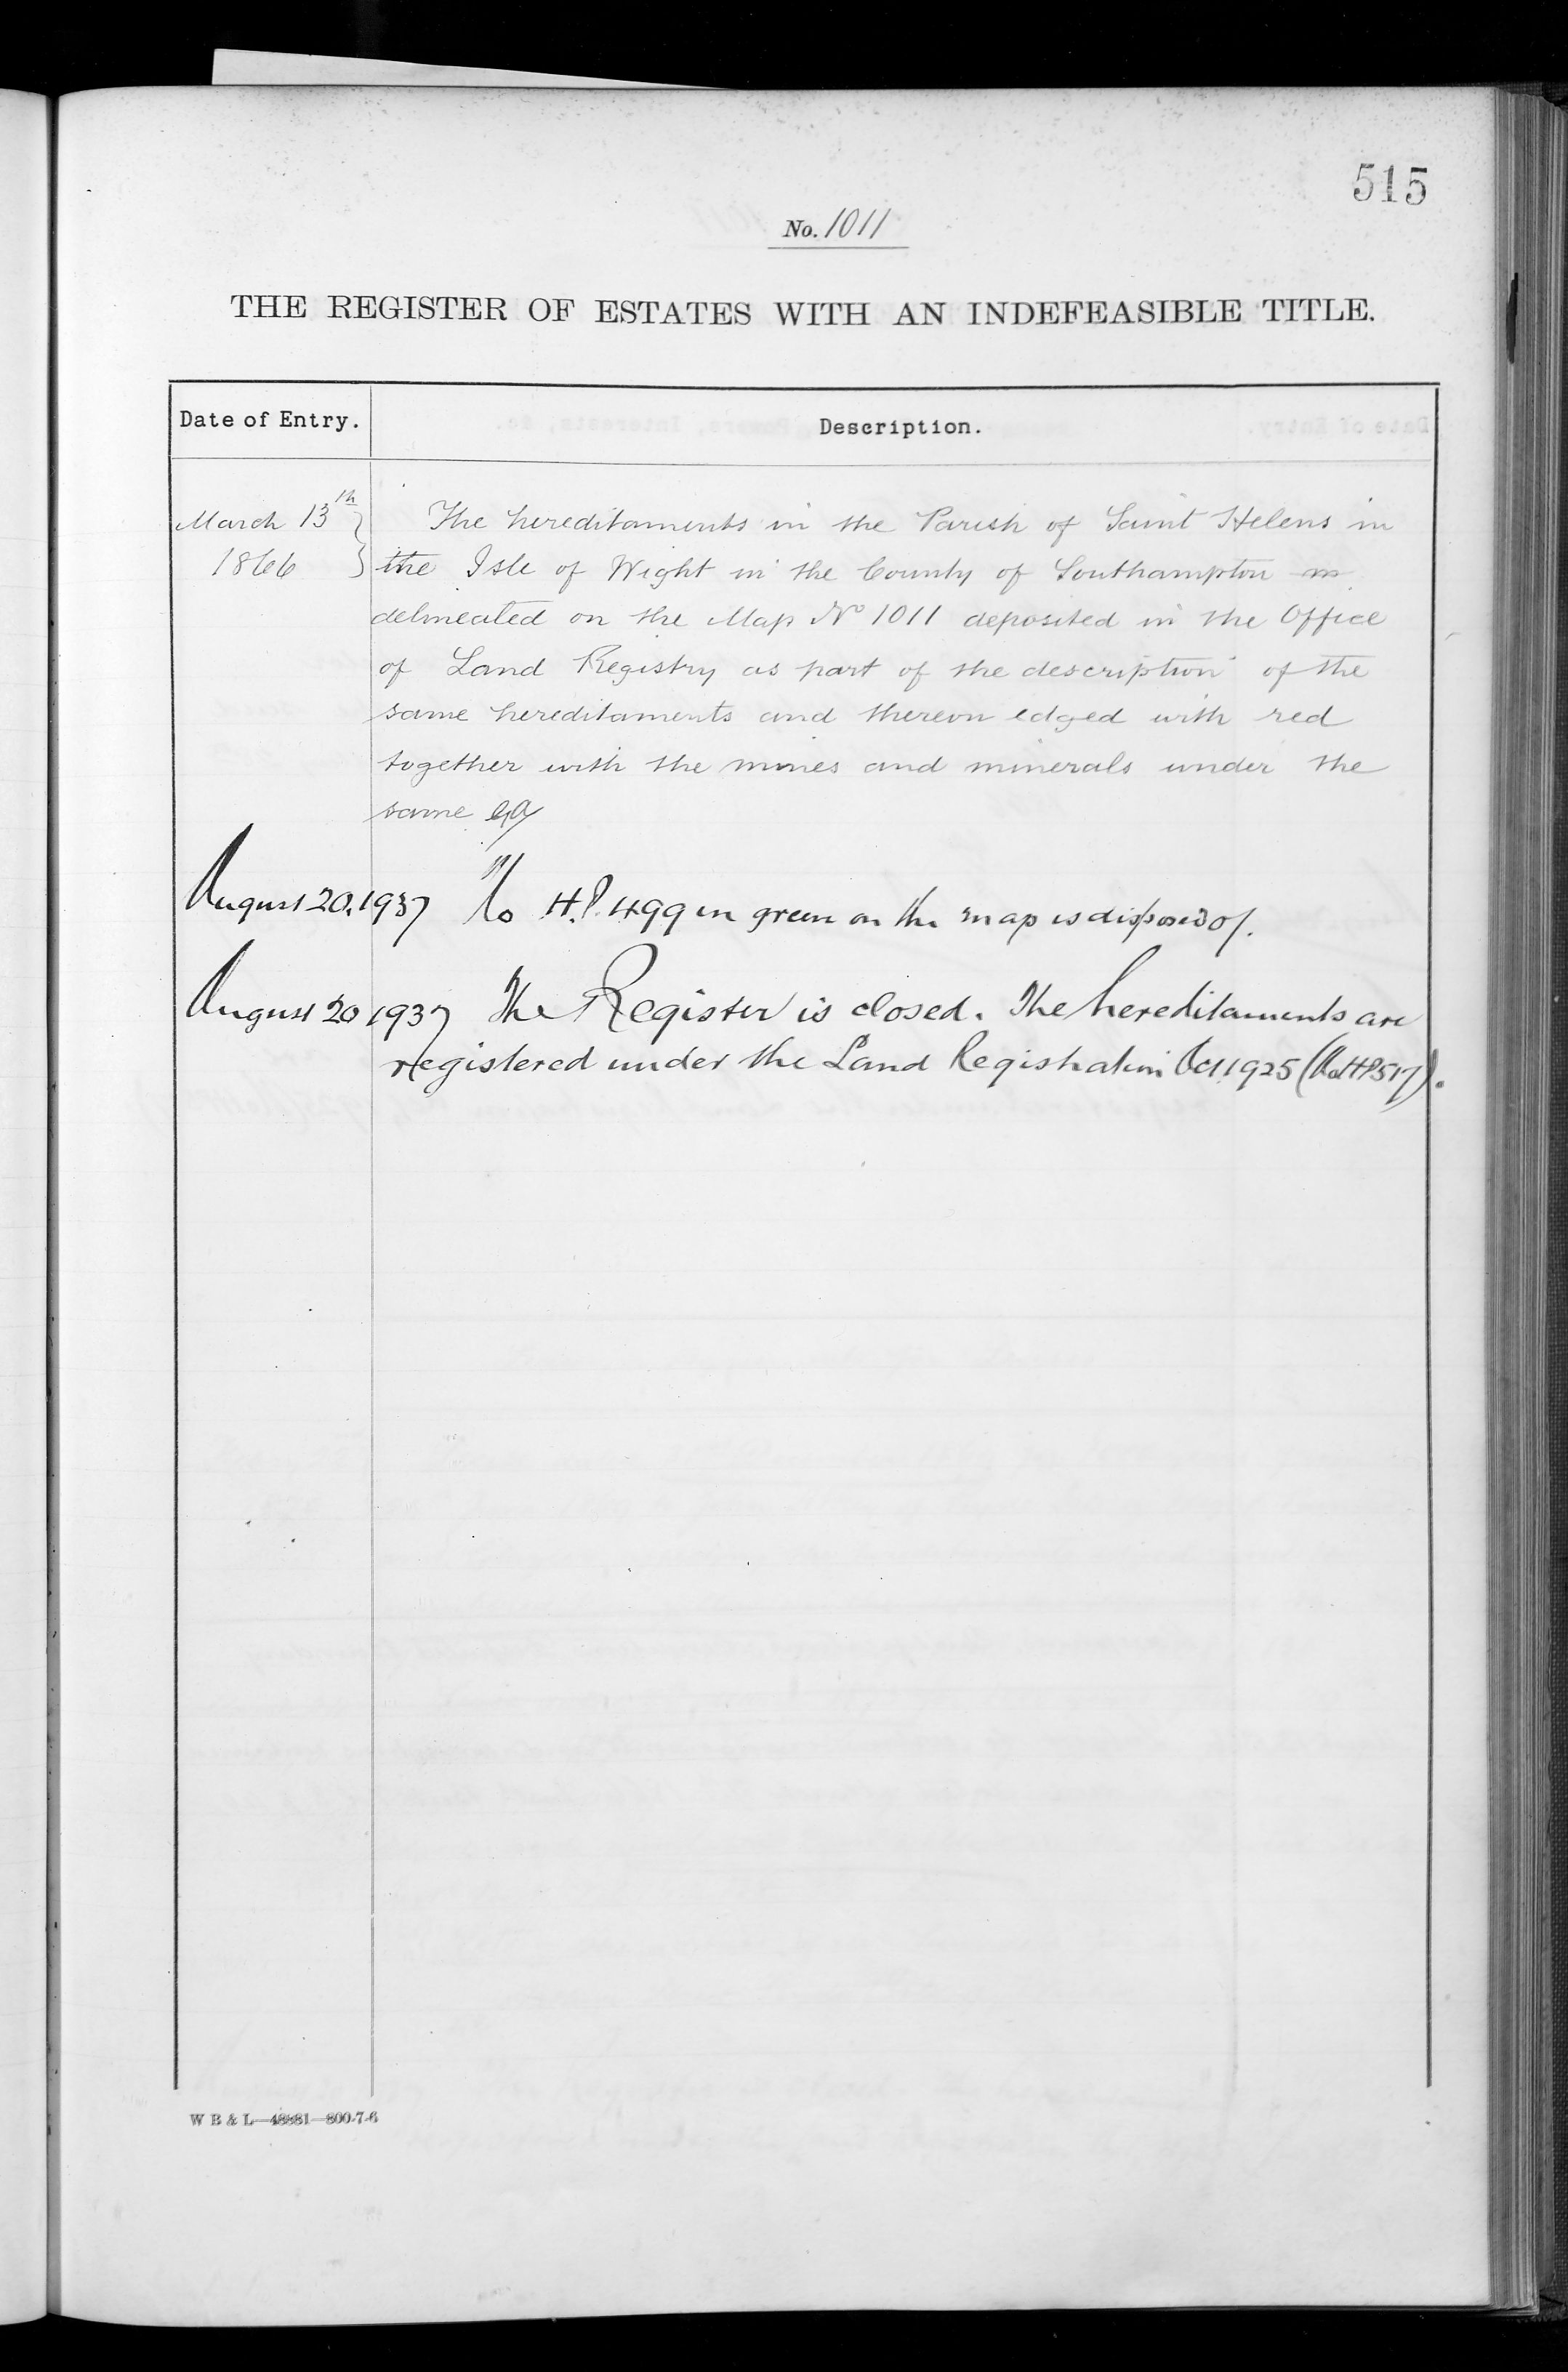 515
No. 1011
THE REGISTER OF ESTATES WITH AN INDEFEASIBLE TITLE.
Date of Entry.
Description.
March 13th 1866
The hereditaments in the Parish of Saint Helens in
the Isle of Wight in the County of Southampton
delineated on the Map No 1011 deposited in the Office
of Land Registry as part of the description of the
same hereditaments and thereon edged with red
together with the mines and minerals under the
same
August 20. 1937 No H.P. 499 in green on the map is disposed of.
August 20 1937 The Register is closed. The hereditaments are
registered under the Land Registration Act 1925 (No HP517).
W B & L—48881—800-7-6